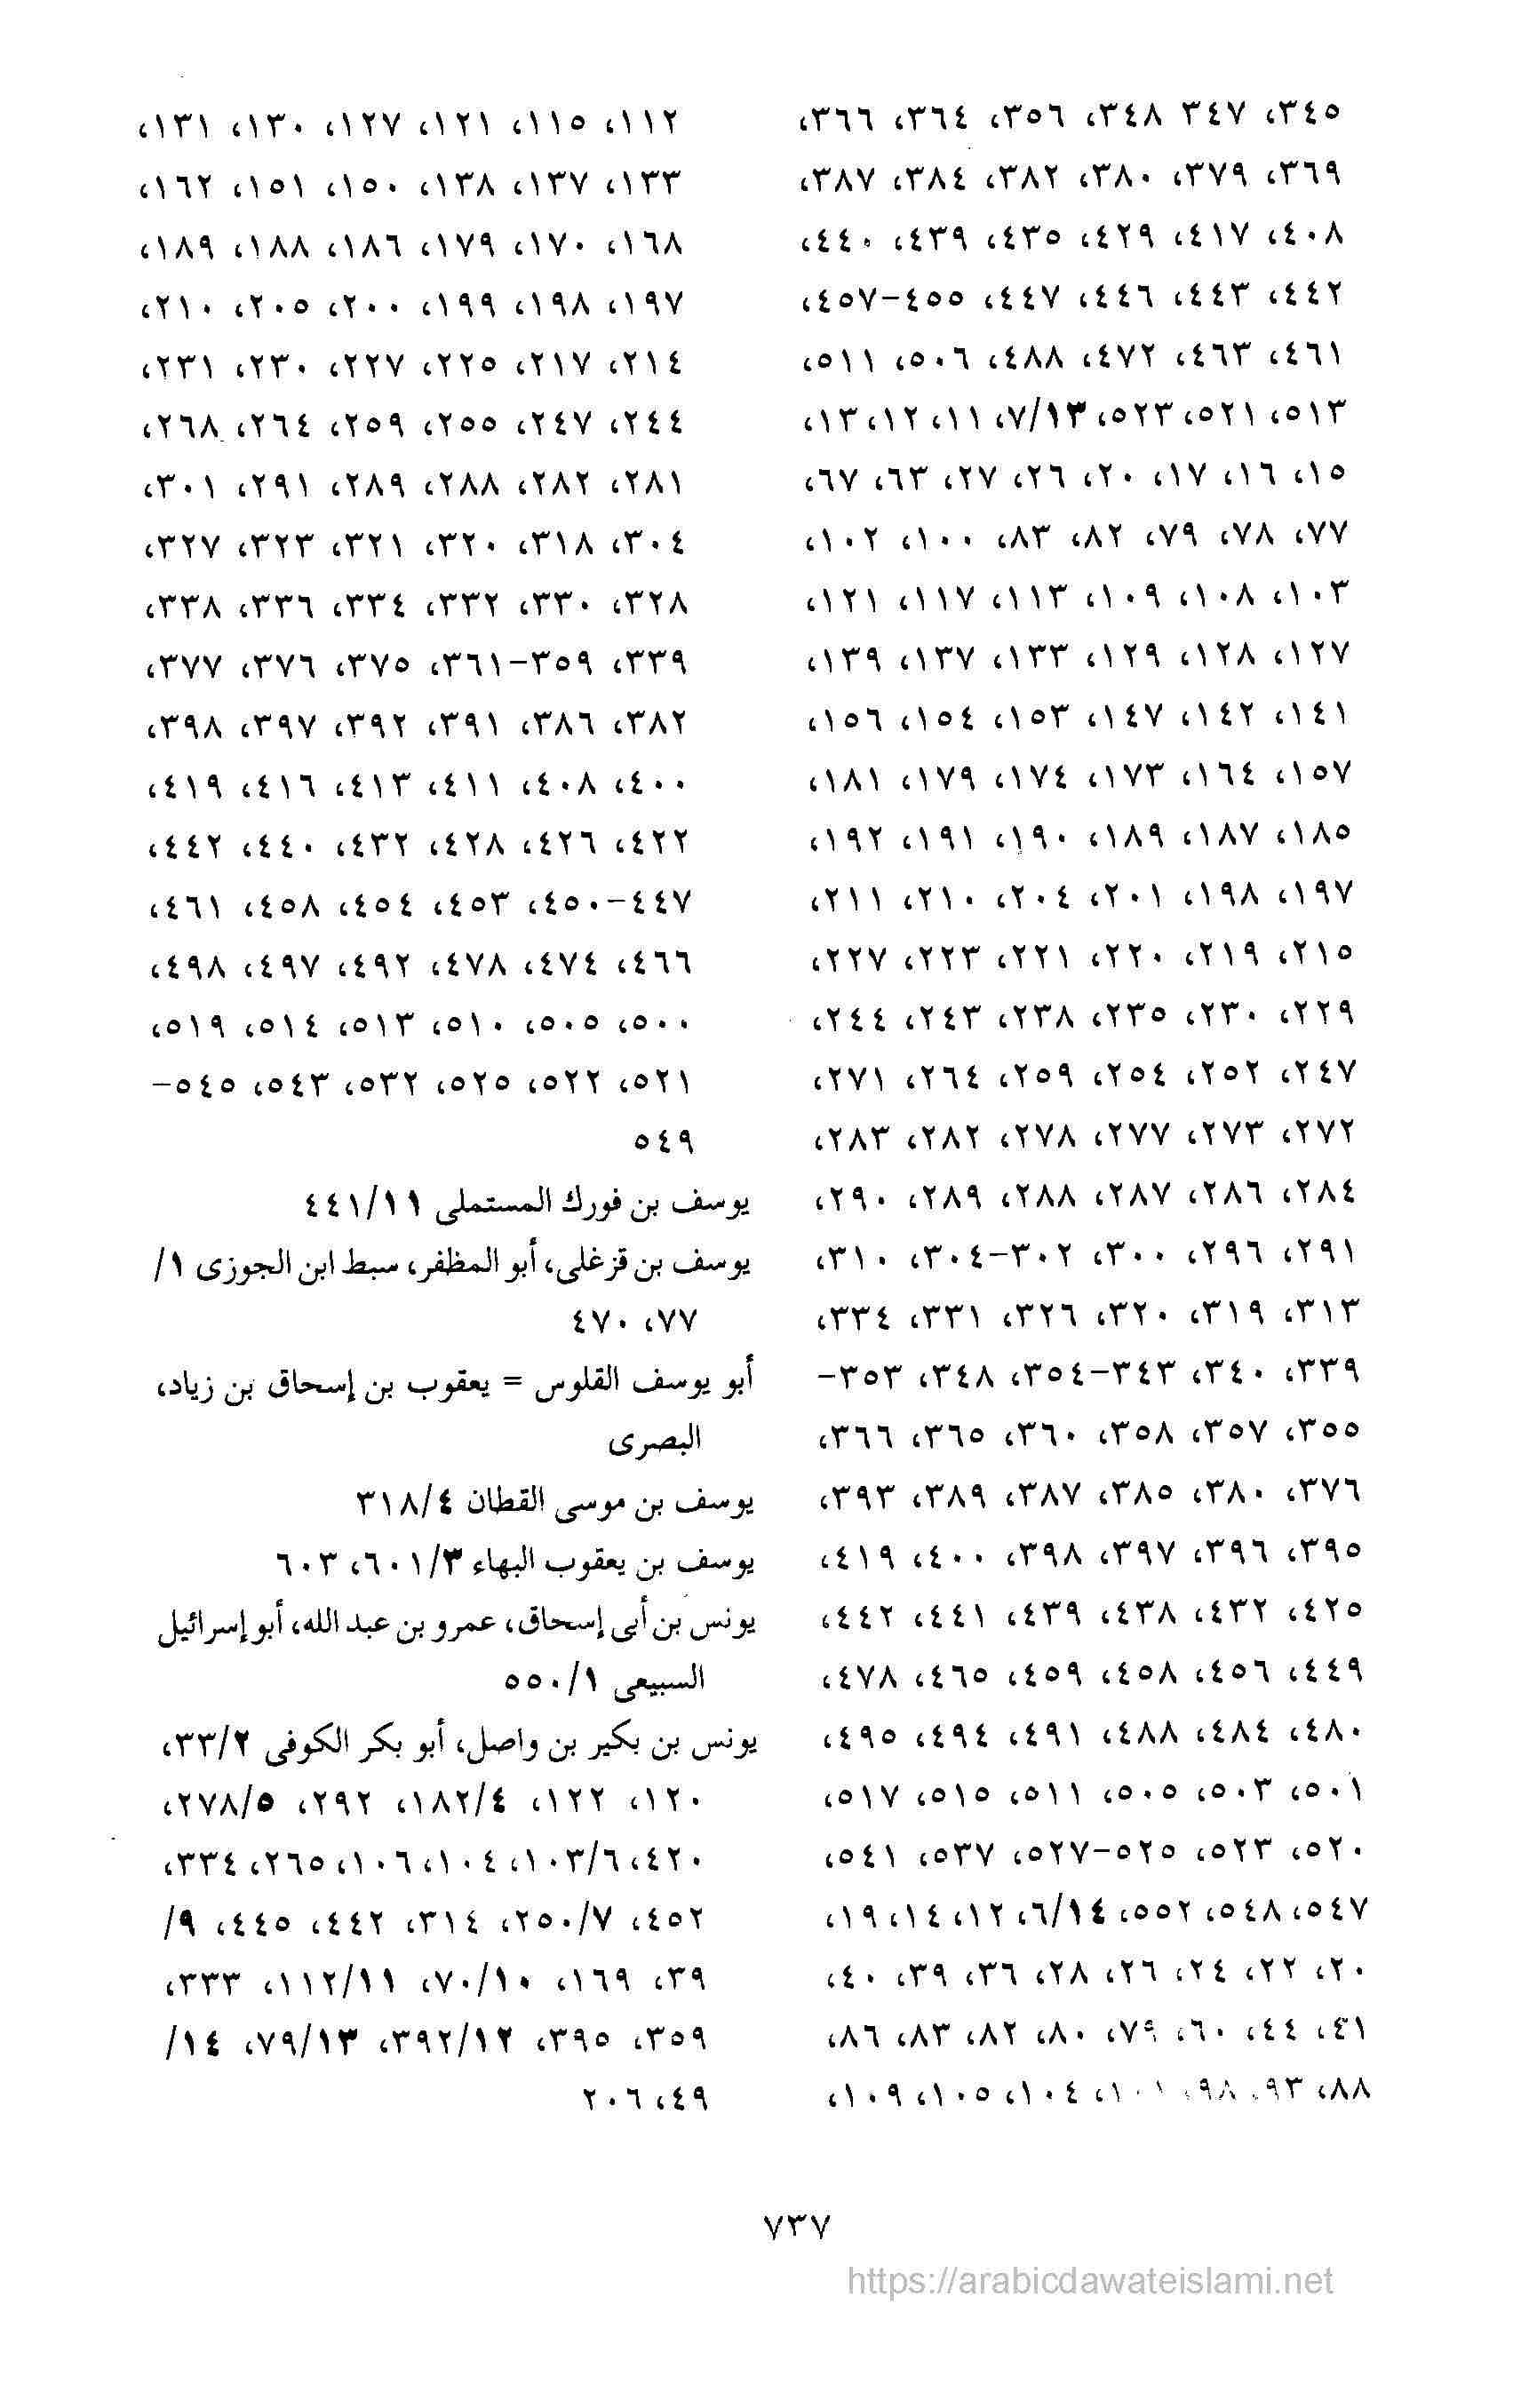 ٣٤٥، ٣٤٧ ٣٤٨، ٣٥٦، ٣٦٤، ٣٦٦،
٣٦٩، ٣٧٩، ٣٨٠، ٣٨٢، ٣٨٤، ٣٨٧،
٤٠٨، ٤١٧، ٤٢٩، ٤٣٥، ٤٣٩، ٤٤٠،
٤٤٢، ٤٤٣، ٤٤٦، ٤٤٧، ٤٥٥-٤٥٧،
٤٦١، ٤٦٣، ٤٧٢، ٤٨٨، ٥٠٦، ٥١١،
٥١٣، ٥٢١، ٥٢٣، ٧/١٣، ١١، ١٢، ١٣،
١٥، ١٦، ١٧، ٢٠، ٢٦، ٢٧، ٦٣، ٦٧،
٧٧، ٧٨، ٧٩، ٨٢، ٨٣، ١٠٠، ١٠٢،
١٠٣، ١٠٨، ١٠٩، ١١٣، ١١٧، ١٢١،
١٢٧، ١٢٨، ١٢٩، ١٣٣، ١٣٧، ١٣٩،
١٤١، ١٤٢، ١٤٧، ١٥٣، ١٥٤، ١٥٦،
١٥٧، ١٦٤، ١٧٣، ١٧٤، ١٧٩، ١٨١،
١٨٥، ١٨٧، ١٨٩، ١٩٠، ١٩١، ١٩٢،
١٩٧، ١٩٨، ٢٠١، ٢٠٤، ٢١٠، ٢١١،
٢١٥، ٢١٩، ٢٢٠، ٢٢١، ٢٢٣، ٢٢٧،
٢٢٩، ٢٣٠، ٢٣٥، ٢٣٨، ٢٤٣، ٢٤٤،
٢٤٧، ٢٥٢، ٢٥٤، ٢٥٩، ٢٦٤، ٢٧١،
٢٧٢، ٢٧٣، ٢٧٧، ٢٧٨، ٢٨٢، ٢٨٣،
٢٨٤، ٢٨٦، ٢٨٧، ٢٨٨، ٢٨٩، ٢٩٠،
٢٩١، ٢٩٦، ٣٠٠، ٣٠٢-٣٠٤، ٣١٠،
٣١٣، ٣١٩، ٣٢٠، ٣٢٦، ٣٣١، ٣٣٤،
٣٣٩، ٣٤٠، ٣٤٣-٣٥٤، ٣٤٨، ٣٥٣-
٣٥٥، ٣٥٧، ٣٥٨، ٣٦٠، ٣٦٥، ٣٦٦،
٣٧٦، ٣٨٠، ٣٨٥، ٣٨٧، ٣٨٩، ٣٩٣،
٣٩٥، ٣٩٦، ٣٩٧، ٣٩٨، ٤٠٠، ٤١٩،
٤٢٥، ٤٣٢، ٤٣٨، ٤٣٩، ٤٤١، ٤٤٢،
٤٤٩، ٤٥٦، ٤٥٨، ٤٥٩، ٤٦٥، ٤٧٨،
٤٨٠، ٤٨٤، ٤٨٨، ٤٩١، ٤٩٤، ٤٩٥،
٥٠١، ٥٠٣، ٥٠٥، ٥١١، ٥١٥، ٥١٧،
٥٢٠، ٥٢٣، ٥٢٥-٥٢٧، ٥٣٧، ٥٤١،
٥٤٧، ٥٤٨، ٥٥٢، ٦/١٤، ١٢، ١٤، ١٩،
٢٠، ٢٢، ٢٤، ٢٦، ٢٨، ٣٦، ٣٩، ٤٠،
٤١، ٤٤، ٦٠، ٧٩، ٨٠، ٨٢، ٨٣، ٨٦،
٨٨، ٩٣، ٩٨، ١٠٤، ١٠٥، ١٠٩،
١١٢، ١١٥، ١٢١، ١٢٧، ١٣٠، ١٣١،
١٣٣، ١٣٧، ١٣٨، ١٥٠، ١٥١، ١٦٢،
١٦٨، ١٧٠، ١٧٩، ١٨٦، ١٨٨، ١٨٩،
١٩٧، ١٩٨، ١٩٩، ٢٠٠، ٢٠٥، ٢١٠،
٢١٤، ٢١٧، ٢٢٥، ٢٢٧، ٢٣٠، ٢٣١،
٢٤٤، ٢٤٧، ٢٥٥، ٢٥٩، ٢٦٤، ٢٦٨،
٢٨١، ٢٨٢، ٢٨٨، ٢٨٩، ٢٩١، ٣٠١،
٣٠٤، ٣١٨، ٣٢٠، ٣٢١، ٣٢٣، ٣٢٧،
٣٢٨، ٣٣٠، ٣٣٢، ٣٣٤، ٣٣٦، ٣٣٨،
٣٣٩، ٣٥٩-٣٦١، ٣٧٥، ٣٧٦، ٣٧٧،
٣٨٢، ٣٨٦، ٣٩١، ٣٩٢، ٣٩٧، ٣٩٨،
٤٠٠، ٤٠٨، ٤١١، ٤١٣، ٤١٦، ٤١٩،
٤٢٢، ٤٢٦، ٤٢٨، ٤٣٢، ٤٤٠، ٤٤٢،
٤٤٧-٤٥٠، ٤٥٣، ٤٥٤، ٤٥٨، ٤٦١،
٤٦٦، ٤٧٤، ٤٧٨، ٤٩٢، ٤٩٧، ٤٩٨،
٥٠٠، ٥٠٥، ٥١٠، ٥١٣، ٥١٤، ٥١٩،
٥٢١، ٥٢٢، ٥٢٥، ٥٣٢، ٥٤٣، ٥٤٥-
٥٤٩
يوسف بن فورك المستملى ٤٤١/١١
يوسف بن قزغلى، أبو المظفر، سبط ابن الجوزى ١/
٧٧، ٤٧٠
أبو يوسف القلوس = يعقوب بن إسحاق بن زياد،
البصرى
يوسف بن موسى القطان ٣١٨/٤
يوسف بن يعقوب البهاء ٦٠١/٣، ٦٠٣
يونس بن أبى إسحاق، عمرو بن عبد الله، أبو إسرائيل
السبيعى ٥٥٠/١
يونس بن بكير بن واصل، أبو بكر الكوفى ٣٣/٢،
١٢٠، ١٢٢، ١٨٢/٤، ٢٩٢، ٢٧٨/٥،
٤٢٠، ١٠٣/٦، ١٠٤، ١٠٦، ٢٦٥، ٣٣٤،
٤٥٢، ٢٥٠/٧، ٣١٤، ٤٤٢، ٤٤٥، ٩/
٣٩، ١٦٩، ٧٠/١٠، ١١٢/١١، ٣٣٣،
٣٥٩، ٣٩٥، ٣٩٢/١٢، ٧٩/١٣، ١٤/
٤٩، ٢٠٦
٧٣٧
https://arabicdawateislami.net